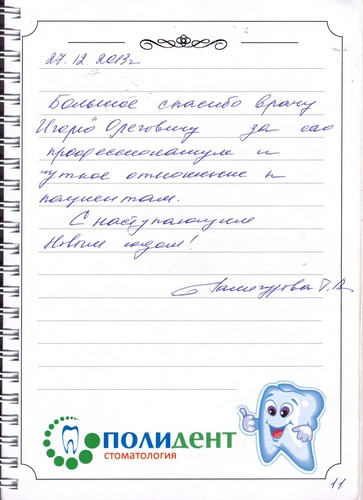 27.12.2013г
Большое спасибо врачу
Игорю Олеговичу за его
профессионализм и
чуткое отношение к
пациентам.
С наступающим
Новым годом!
Т.А
ПОЛИДЕНТ
СТОМАТОЛОГИЯ
11